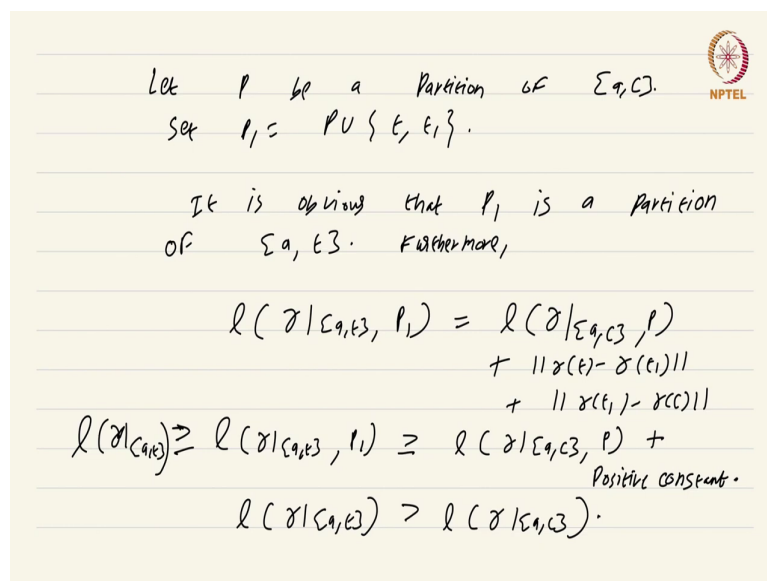 NPTEL
Let P be a Partition of [a,c].
Set P₁ = P ∪ { t, t₁ }.
It is obvious that P₁ is a partition
of [a, t]. Furthermore,
ℓ( γ|[a,t], P₁) = ℓ(γ|[a,c], P)
+ ||γ(t) - γ(t₁)||
+ ||γ(t₁) - γ(c)||
ℓ(γ|[a,t]) ≥ ℓ(γ|[a,t], P₁) ≥ ℓ(γ|[a,c], P) +
Positive constant.
ℓ(γ|[a,t]) > ℓ(γ|[a,c]).